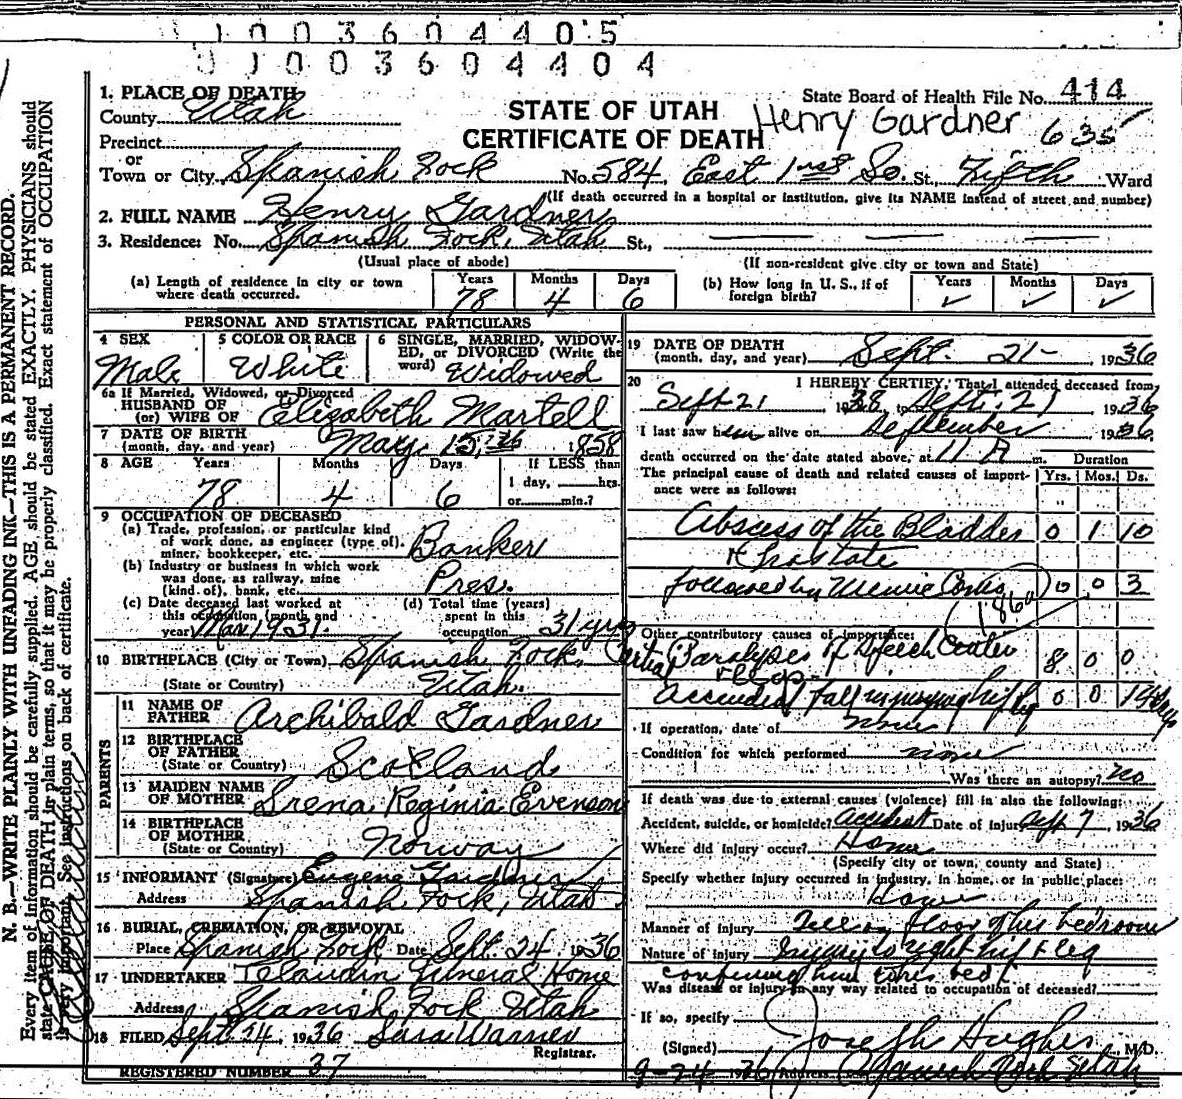 1003604405
01003604404
1. PLACE OF DEATH
County Utah
STATE OF UTAH
CERTIFICATE OF DEATH
State Board of Health File No. 414
Henry Gardner 635
Precinct
or
Town or City Spanish Fork No. 584 East 1st So. St., Fifth Ward
(If death occurred in a hospital or institution, give its NAME instead of street and number)
2. FULL NAME Henry Gardner
3. Residence: No. Spanish Fork, Utah St.,
(Usual place of abode) (If non-resident give city or town and State)
(a) Length of residence in city or town where death occurred. Years 78 Months 4 Days 6
(b) How long in U. S., if of foreign birth? Years Months Days
PERSONAL AND STATISTICAL PARTICULARS
4 SEX Male
5 COLOR OR RACE White
6 SINGLE, MARRIED, WIDOWED, or DIVORCED (Write the word) Widowed
6a If Married, Widowed, or Divorced
HUSBAND OF
(or) WIFE OF Elizabeth Martell
7 DATE OF BIRTH
(month, day, and year) May 15, 1858
8 AGE Years 78 Months 4 Days 6
If LESS than
1 day, hrs.
or min.?
9 OCCUPATION OF DECEASED
(a) Trade, profession, or particular kind
of work done, as engineer (type of),
miner, bookkeeper, etc. Banker
(b) Industry or business in which work
was done, as railway, mine
(kind of), bank, etc. Pres.
(c) Date deceased last worked at
this occupation (month and
year) Mar 1931.
(d) Total time (years)
spent in this
occupation 31 yrs
10 BIRTHPLACE (City or Town) Spanish Fork,
(State or Country) Utah.
PARENTS
11 NAME OF
FATHER Archibald Gardner
12 BIRTHPLACE
OF FATHER
(State or Country) Scotland
13 MAIDEN NAME
OF MOTHER Srena Reginia Evenson
14 BIRTHPLACE
OF MOTHER
(State or Country) Norway
15 INFORMANT (Signature) Eugene Gardner
Address Spanish Fork, Utah
16 BURIAL, CREMATION, OR REMOVAL
Place Spanish Fork Date Sept. 24 1936
17 UNDERTAKER Claudin General Home
Address Spanish Fork Utah
18 FILED Sept. 24, 1936 Sara Warner
Registrar.
REGISTERED NUMBER 37
19 DATE OF DEATH
(month, day, and year) Sept. 21- 1936
20 I HEREBY CERTIFY, That I attended deceased from
Sept 21 to Sept. 21 1936
I last saw him alive on September 1936
death occurred on the date stated above, at 11 A m.
Duration
The principal cause of death and related causes of importance were as follows: Yrs. Mos. Ds.
Abscess of the Bladder 0 1 10
& Prostate
followed by Uremic Coma 0 0 3
Other contributory causes of importance:
Partial Paralyses of Speech Center 8 0 0
accidental Fall injuring hip 0 0 14 days
If operation, date of none
Condition for which performed none
Was there an autopsy? no
If death was due to external causes (violence) fill in also the following:
Accident, suicide, or homicide? accident Date of injury Sept 7, 1936
Where did injury occur? Home
(Specify city or town, county and State)
Specify whether injury occurred in industry, in home, or in public place:
Home
Manner of injury Fell on floor of his bedroom
Nature of injury Injury to right hip & leg
confining him to his bed
Was disease or injury in any way related to occupation of deceased?
If so, specify
(Signed) Joseph Hughes, M.D.
9-24 1936 Address Spanish Fork Utah
N. B.—WRITE PLAINLY WITH UNFADING INK—THIS IS A PERMANENT RECORD.
Every item of information should be carefully supplied. AGE should be stated EXACTLY. PHYSICIANS should
state CAUSE OF DEATH in plain terms, so that it may be properly classified. Exact statement of OCCUPATION
is very important. See instructions on back of certificate.